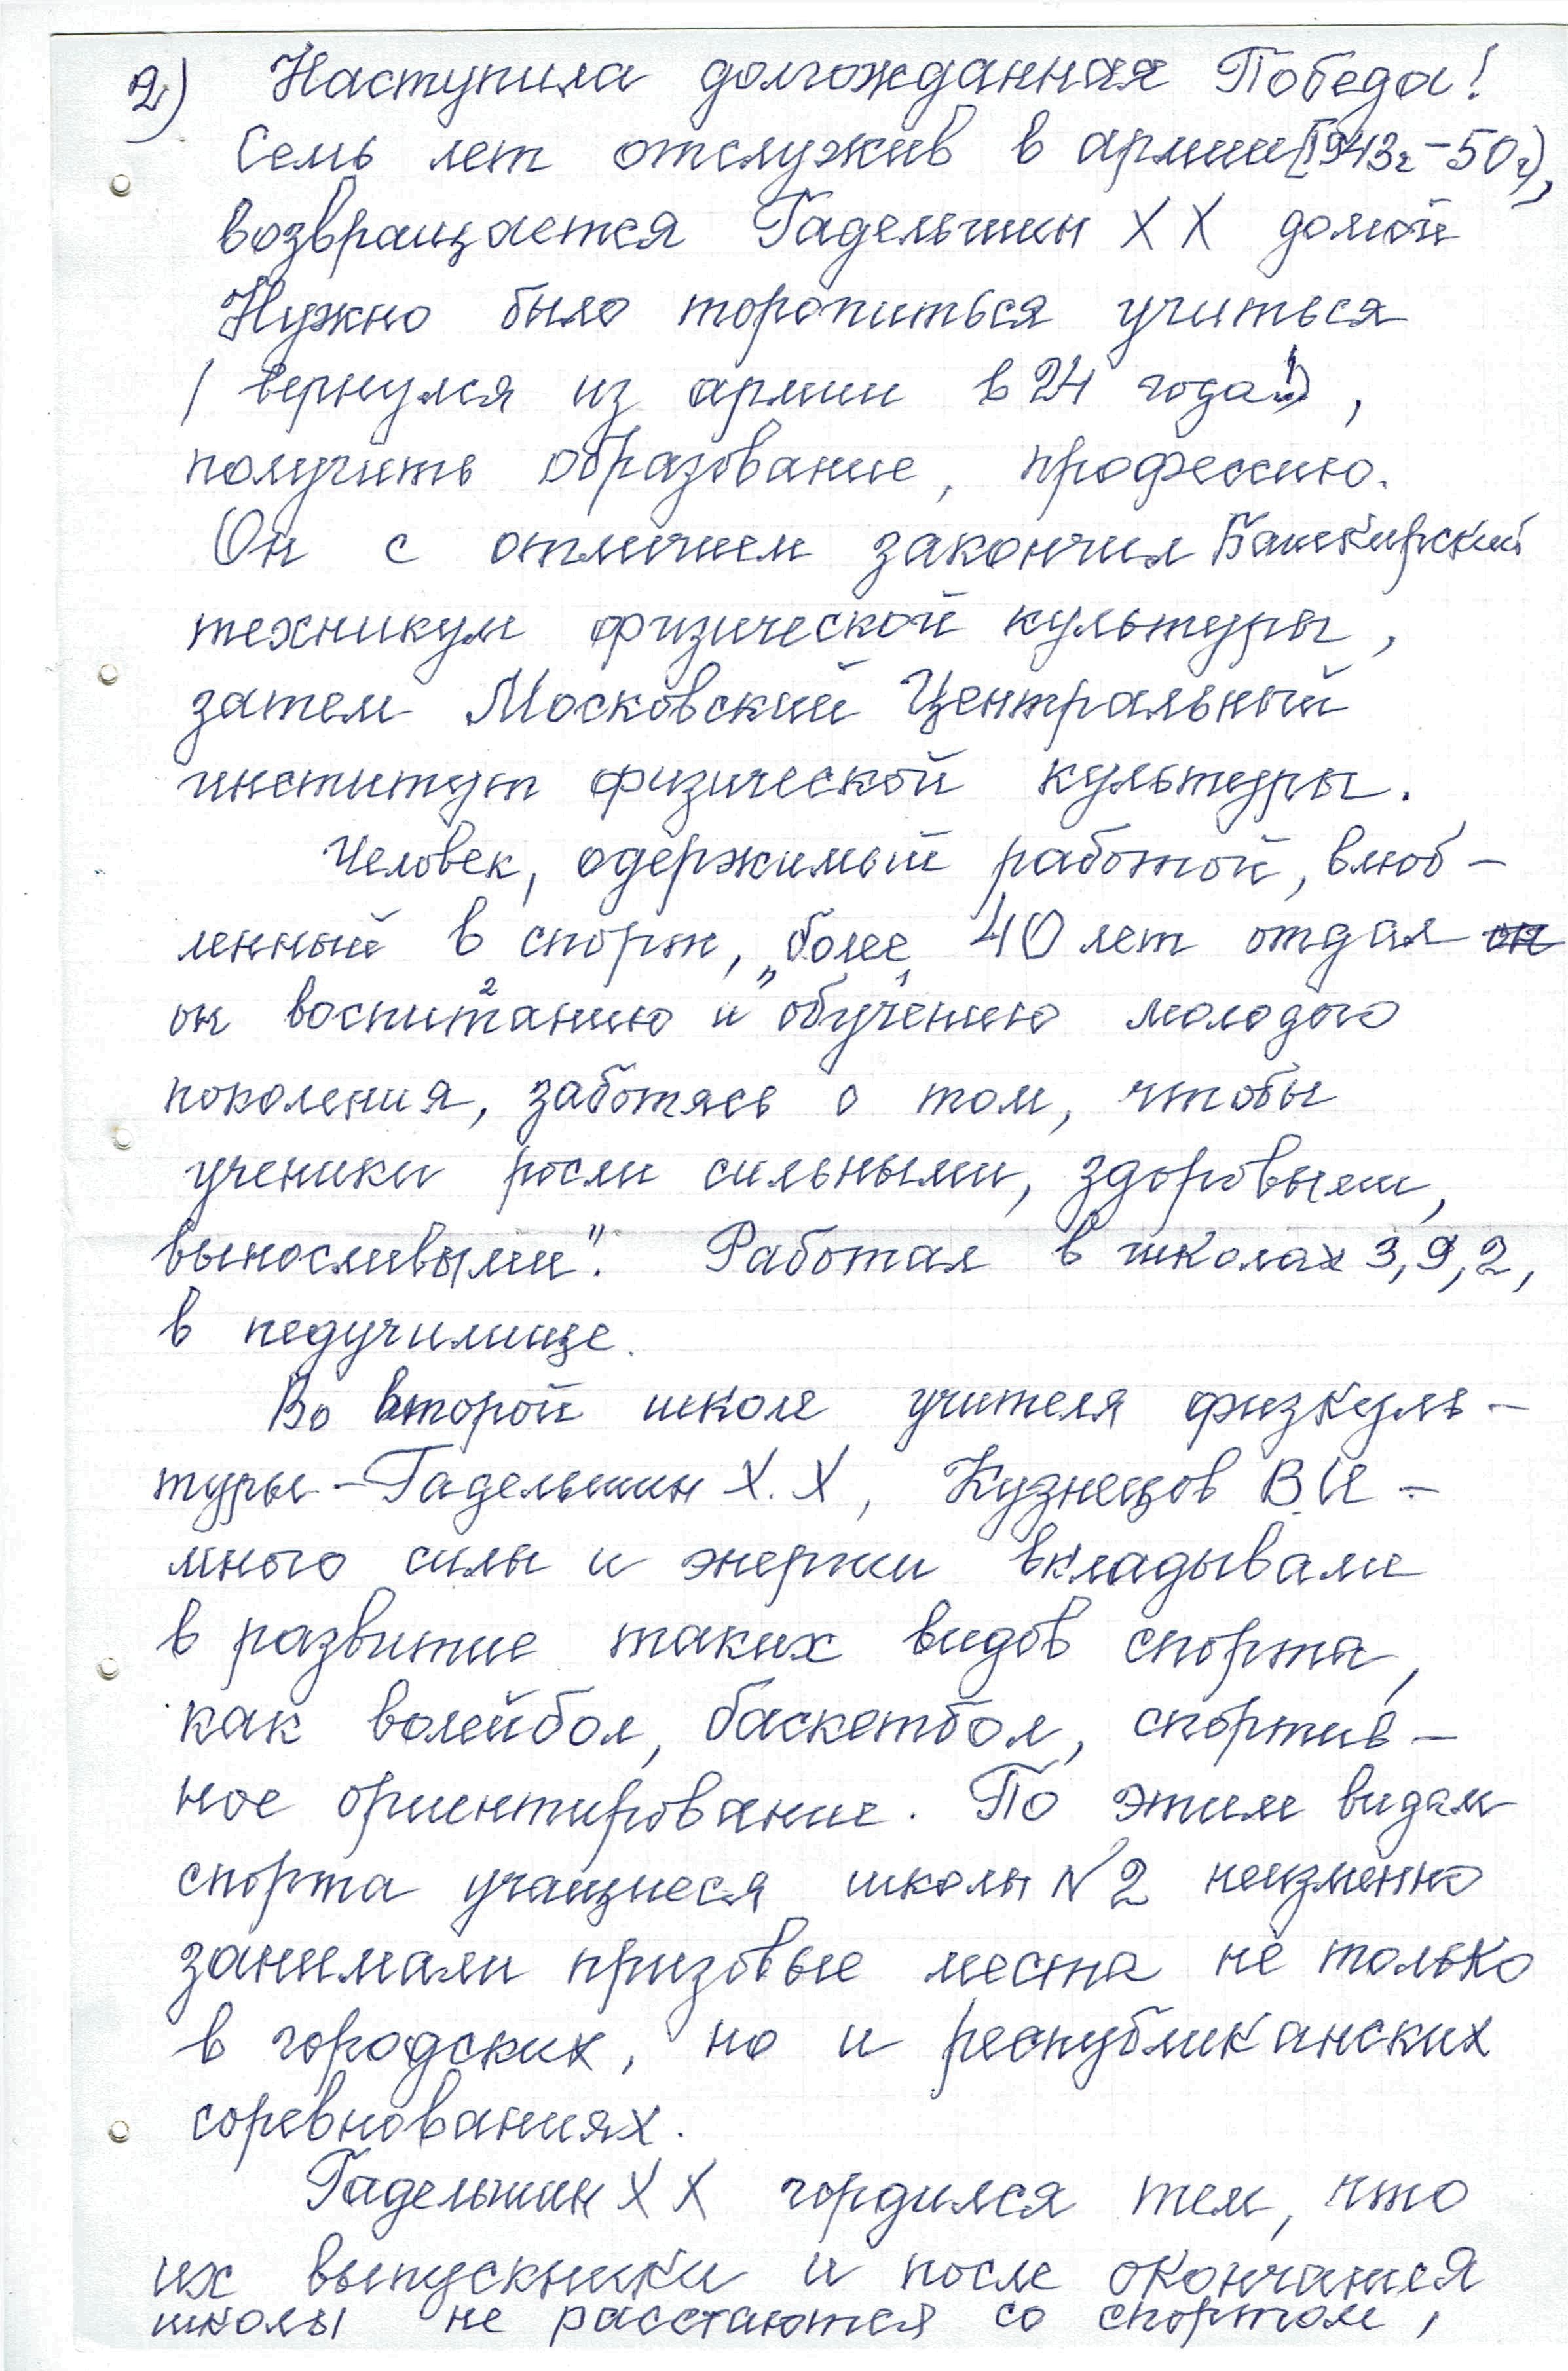 2) Наступила долгожданная Победа!
Семь лет отслужив в армии (1943г-50г),
возвращается Гадельшин Х Х домой
Нужно было торопиться учиться
( вернулся из армии в 24 года!),
получить образование, профессию.
Он с отличием закончил Башкирский
техникум физической культуры,
затем Московский Центральный
институт физической культуры.
Человек, одержимый работой, влюб-
ленный в спорт, „более 40 лет отдал он
он воспитанию и обучению молодого
поколения, заботясь о том, чтобы
ученики росли сильными, здоровыми,
выносливыми". Работал в школах 3, 9, 2,
в педучилище.
Во второй школе учителя физкуль-
туры - Гадельшин Х. Х, Кузнецов В И -
много силы и энергии вкладывали
в развитие таких видов спорта,
как волейбол, баскетбол, спортив-
ное ориентирование. По этим видам
спорта учащиеся школы N 2 неизменно
занимали призовые места не только
в городских, но и республиканских
соревнованиях.
Гадельшин Х Х гордился тем, что
их выпускники и после окончания
школы не расстаются со спортом,